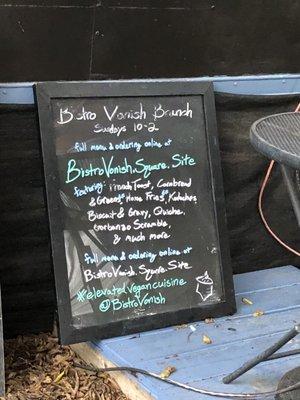 Bistro Vonish Brunch
Sundays 10-2
full menu & ordering online at
BistroVonish.Square.Site
featuring: French Toast, Cornbread
& Greens, Home Fries, Kolaches,
Biscuit & Gravy, Quiche,
Garbanzo Scramble,
& much more.
full menu & ordering online at
BistroVonish.Square.Site
#elevatedvegancuisine
@BistroVonish